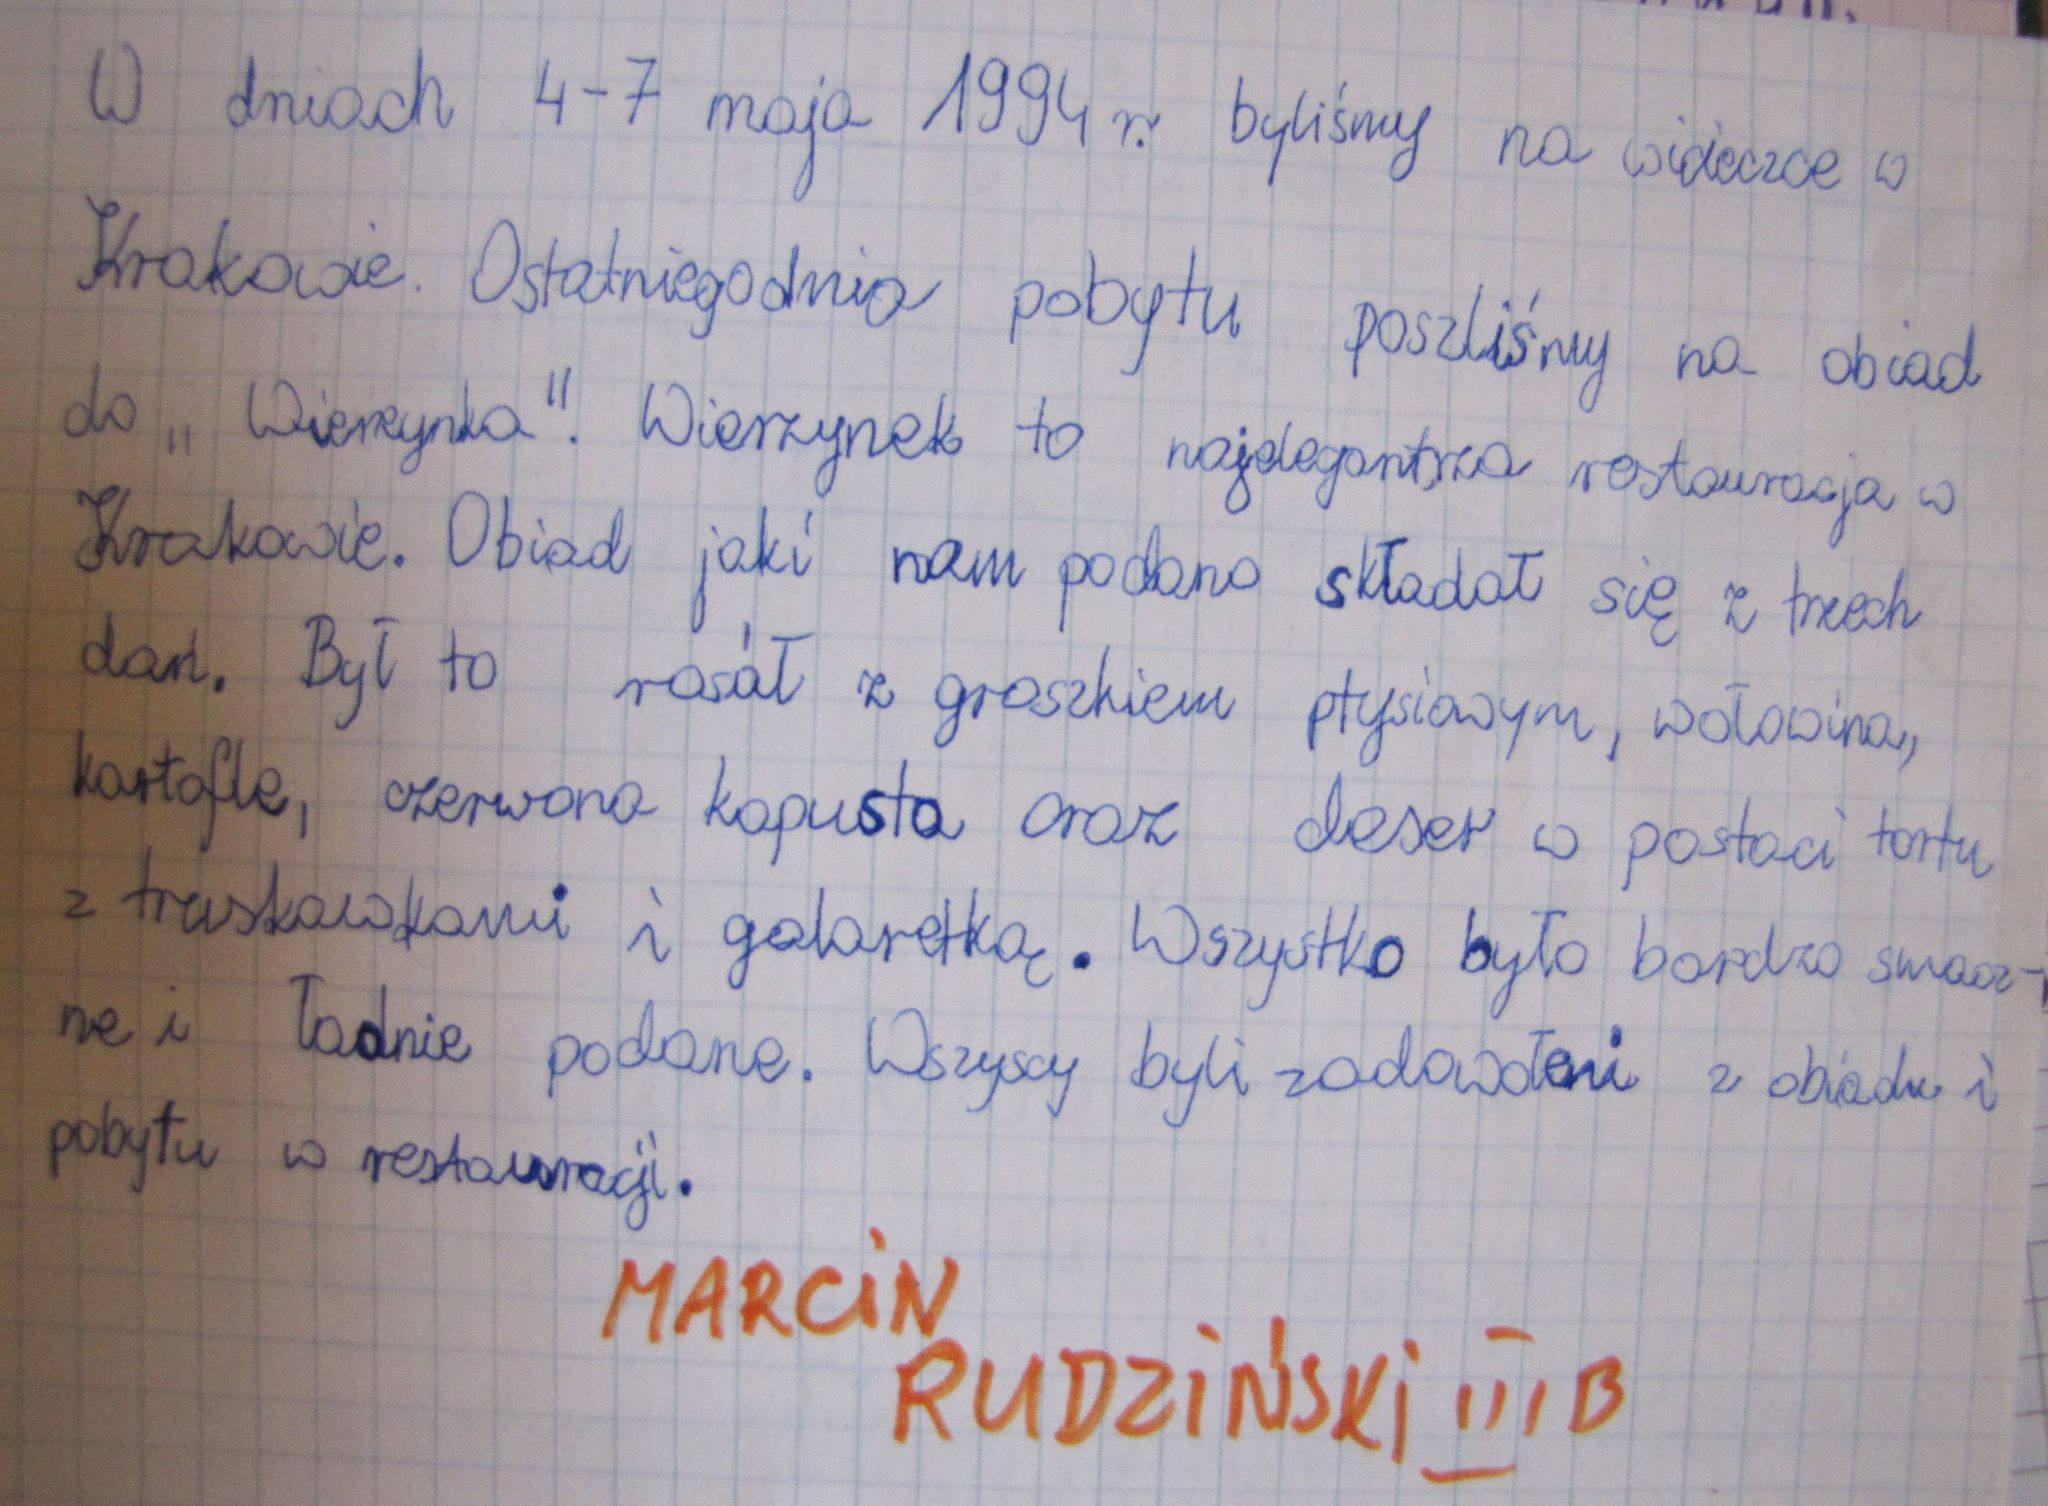 W dniach 4-7 maja 1994 r. byliśmy na wycieczce w
Krakowie. Ostatniego dnia pobytu poszliśmy na obiad
do „Wierzynka". Wierzynek to najelegantsza restauracja w
Krakowie. Obiad jaki nam podano składał się z trzech
dań. Był to rosół z groszkiem ptysiowym, wołowina,
kartofle, czerwona kapusta oraz deser w postaci tortu
z truskawkami i galaretką. Wszystko było bardzo smacz-
ne i ładnie podane. Wszyscy byli zadowoleni z obiadu i
pobytu w restauracji.
MARCIN
RUDZIŃSKI III B